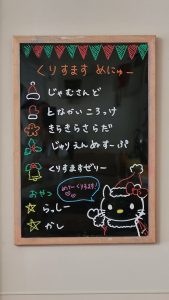 くりすます めにゅー
じゃむさんど
となかい ころっけ
きらきらさらだ
じゅりえんぬすーぷ
くりすますゼリー
おやつ
めりーくりすます!
らっしー
かし